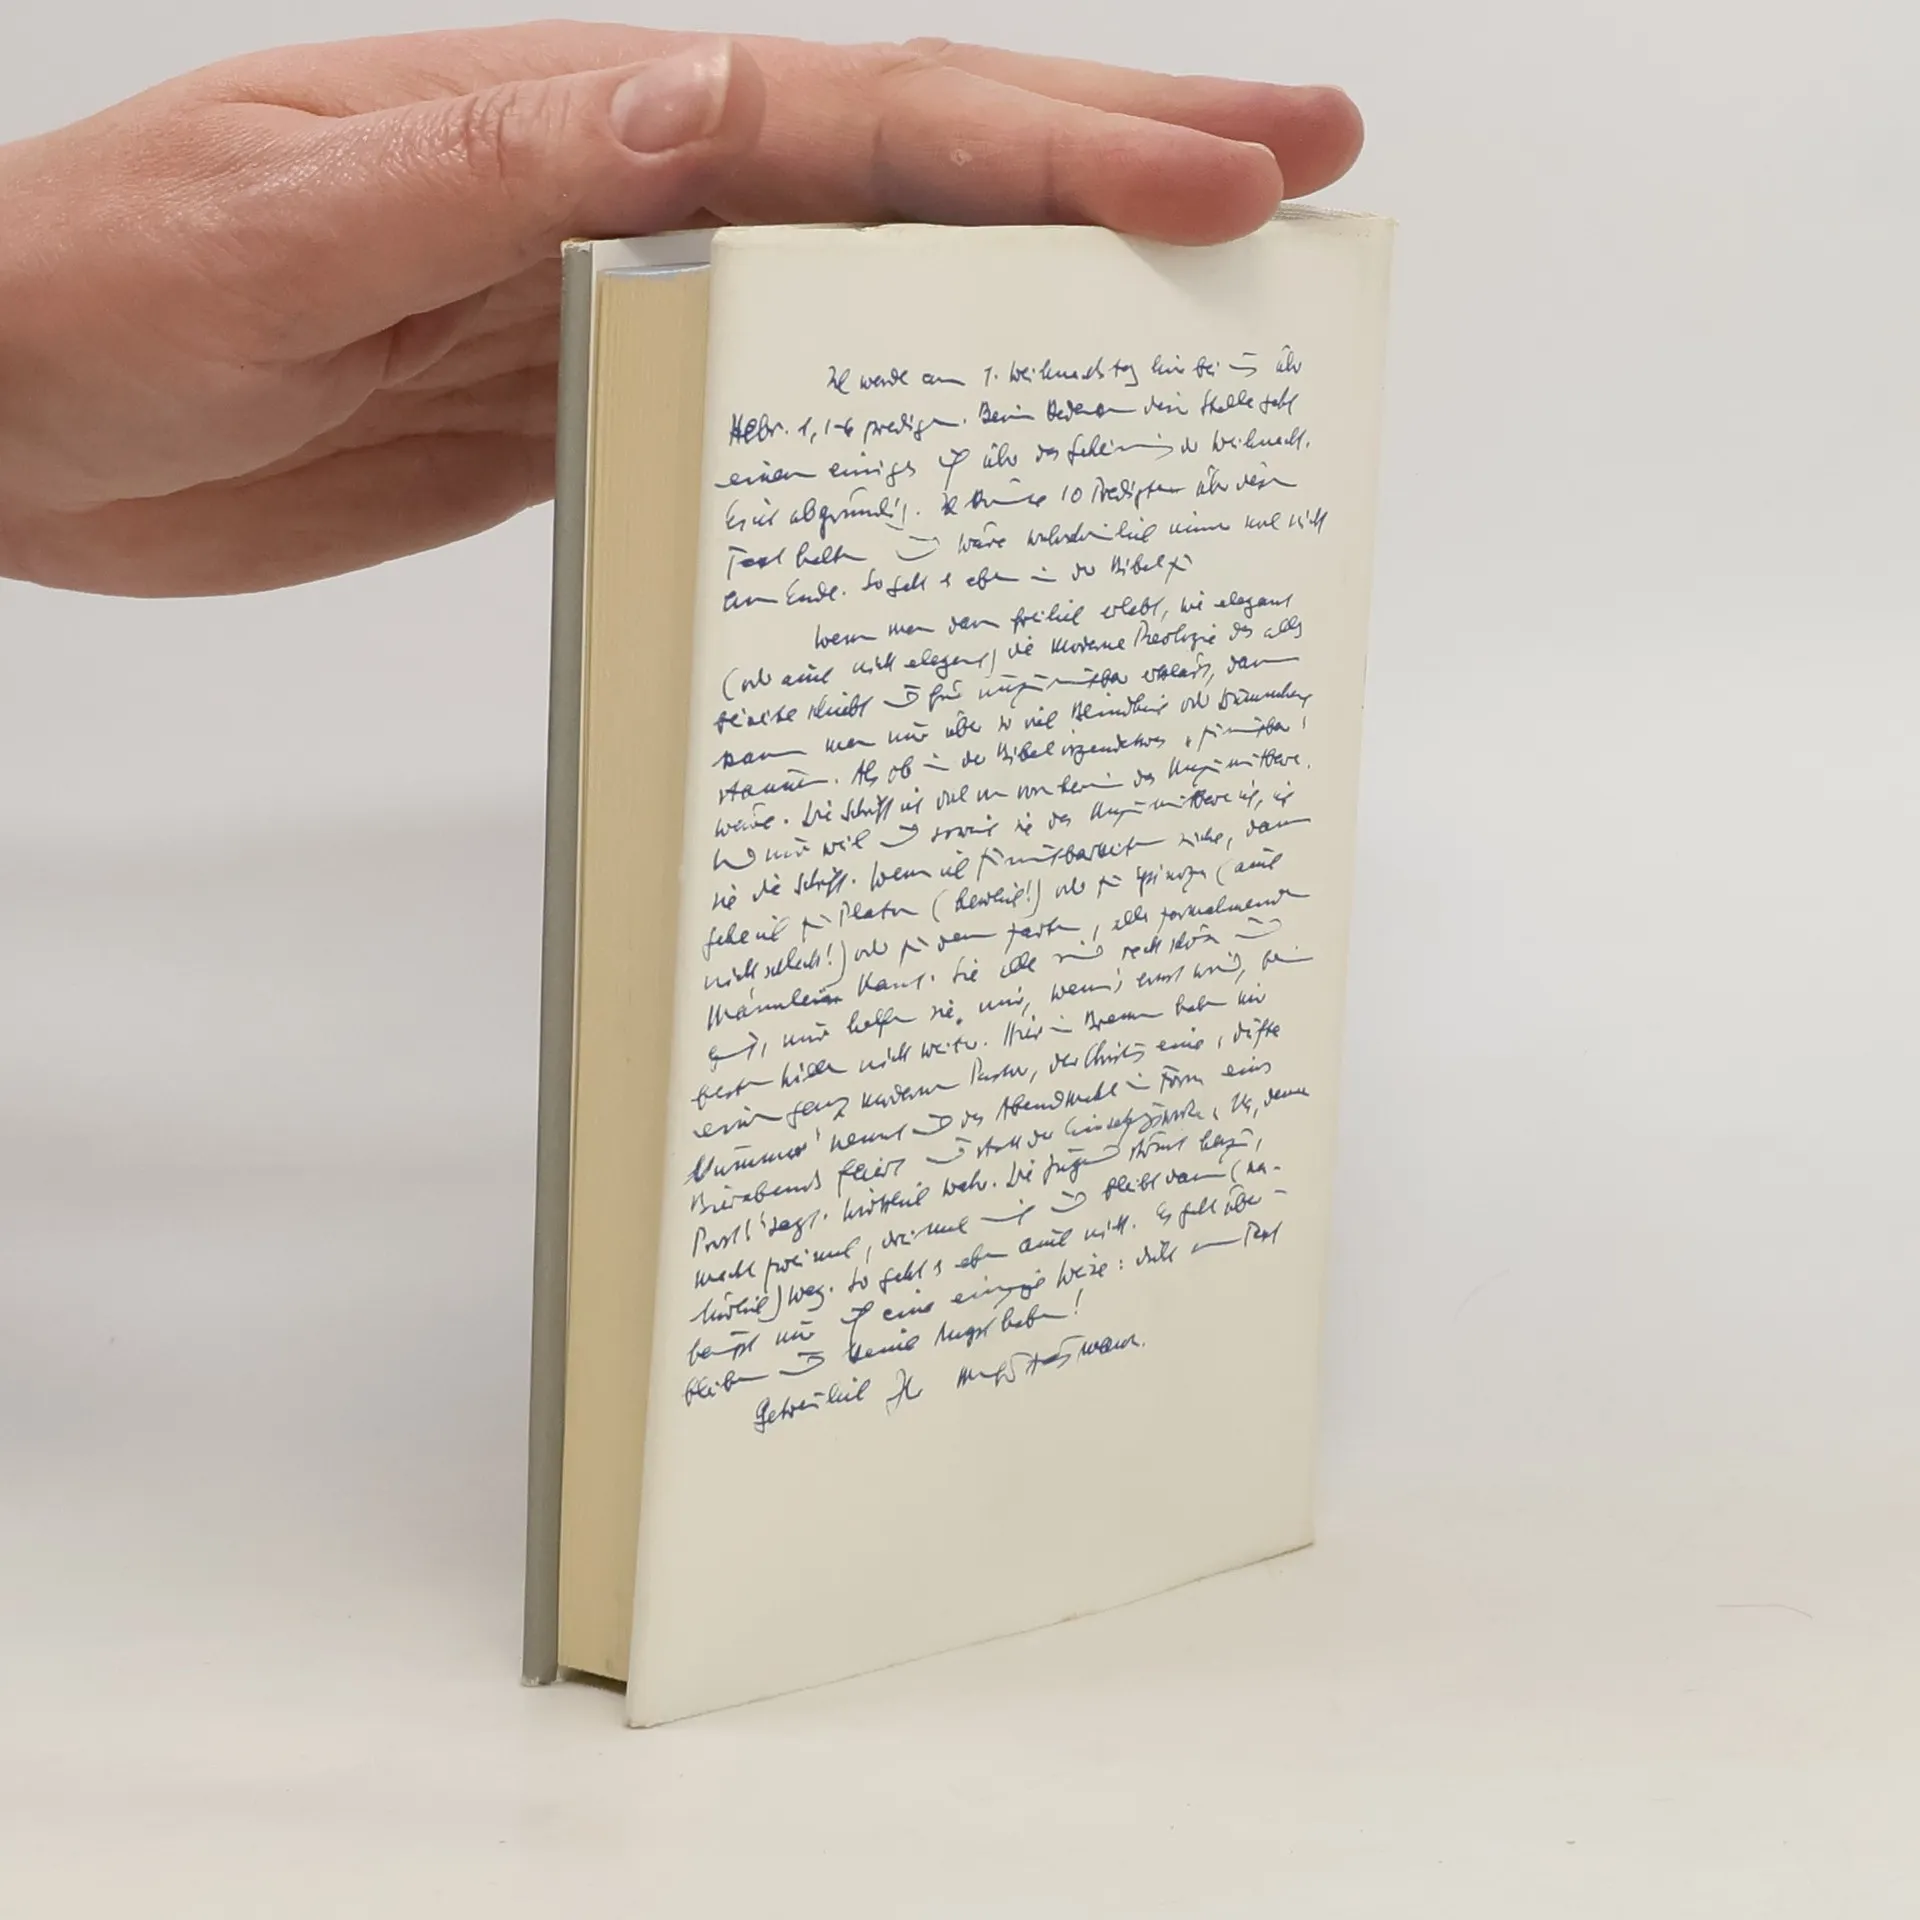 Ich werde am 1. Weihnachtstag hier bei uns über
Hebr. 1, 1-6 predigen. Beim Bedenken dieser Stelle geht
einem einiges auf über das Geheimnis der Weihnacht.
Es ist abgründig. Ich könnte 10 Predigten über diesen
Text halten und wäre wahrscheinlich immer noch nicht
am Ende. So geht es eben in der Bibel zu
Wenn man dann freilich erlebt, wie elegant
(oder auch nicht elegant) die moderne Theologie das alles
beiseite schiebt und für unzumutbar erklärt, dann
kann man nur über so viel Blindheit oder
staunen. Als ob in der Bibel irgendetwas „zumutbar"
wäre. Die Schrift ist von vornherein das Unzumutbare.
Und nur weil und soweit sie das Unzumutbare ist, ist
sie die Schrift. Wenn ich Zumutbarkeiten suche, dann
gehe ich zu Platon (herrlich!) oder zu Spinoza (auch
nicht schlecht!) oder zu dem zarten, alles zermalmenden
Männlein Kant. Sie alle sind recht schön und
gut, nur helfen sie mir, wenn's ernst wird, beim
besten Willen nicht weiter. Hier in Bremen haben wir
einen ganz modernen Pastor, der Christus eine „dufte
Nummer" nennt und das Abendmahl in Form eines
Bierabends feiert und statt der Einsetzungsworte „Na, denn
Prost!" sagt. Wirklich wahr. Die Jugend strömt herzu,
macht zweimal, dreimal mit und bleibt dann (na-
türlich) weg. So geht es eben auch nicht. Es geht über-
haupt nur auf eine einzige Weise: dicht am Text
bleiben und keine Angst haben!
Getreulich Ihr Manfred Hausmann.